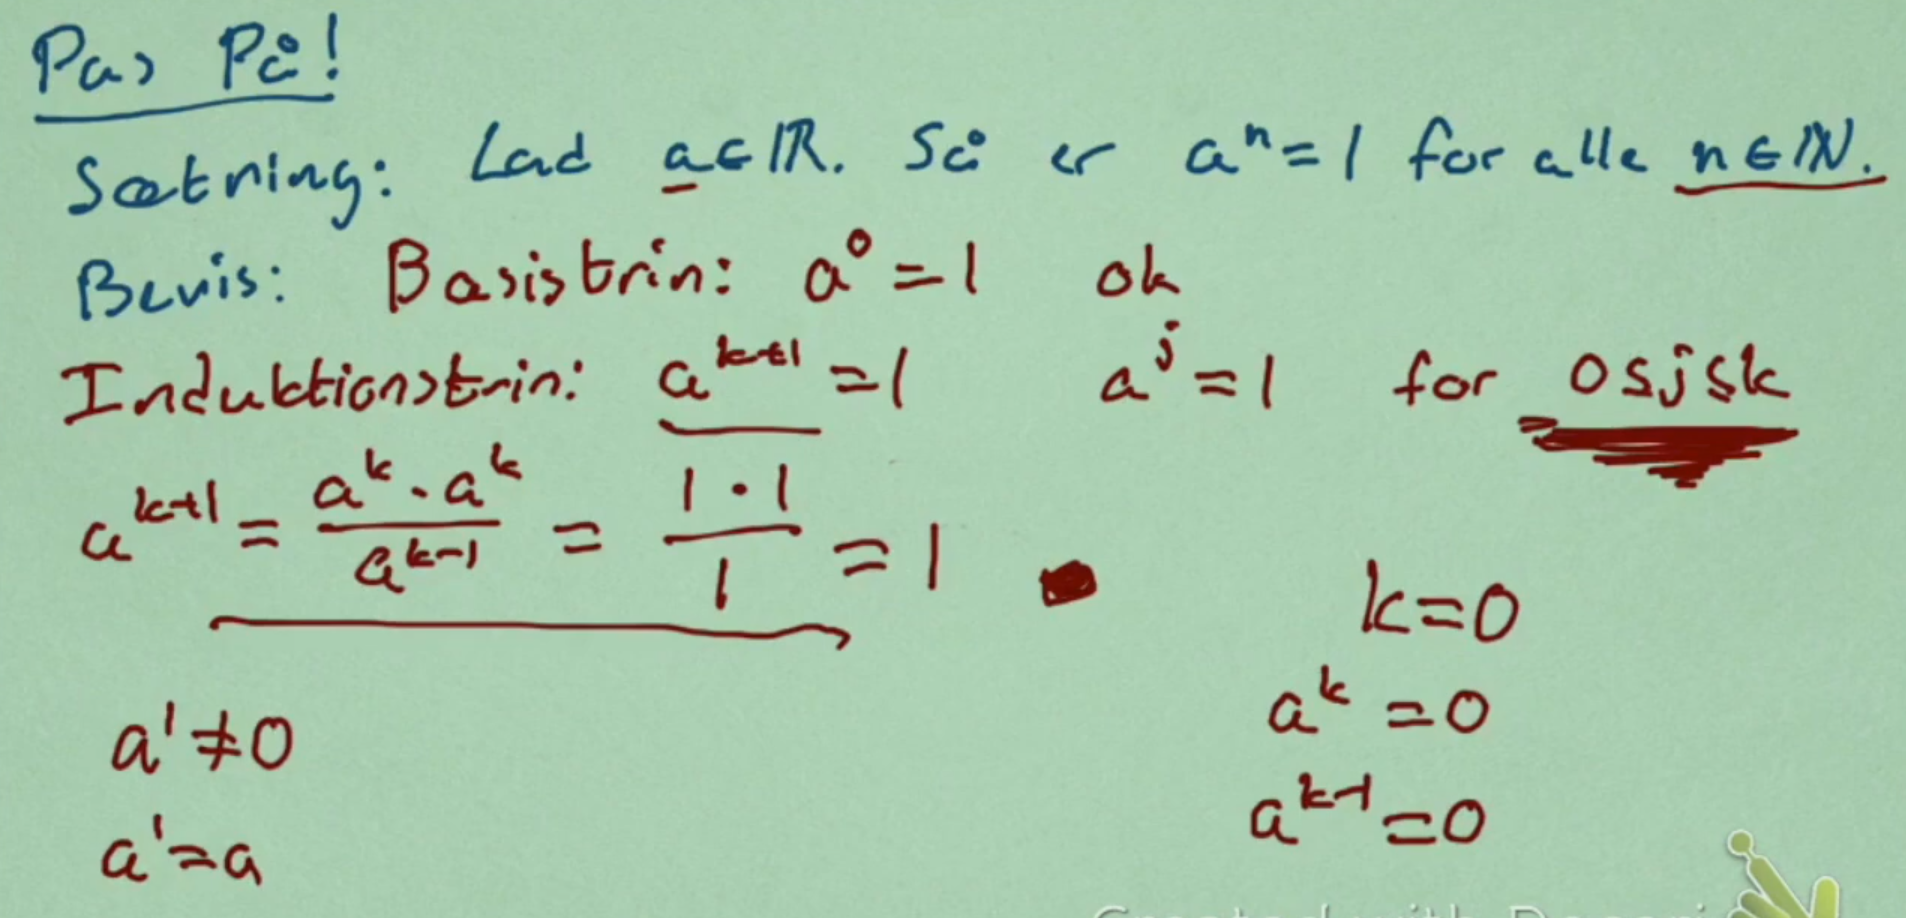 Pas På!
Sætning: Lad a∈ℝ. Så er aⁿ=1 for alle n∈ℕ.
Bevis: Basistrin: a⁰=1 ok
Induktionstrin: aᵏ⁺¹=1 aʲ=1 for 0≤j≤k
aᵏ⁺¹ = (aᵏ·aᵏ)/aᵏ⁻¹ = (1·1)/1 = 1
k=0
a¹≠0 aᵏ=0
a¹=a aᵏ⁻¹=0
Created with